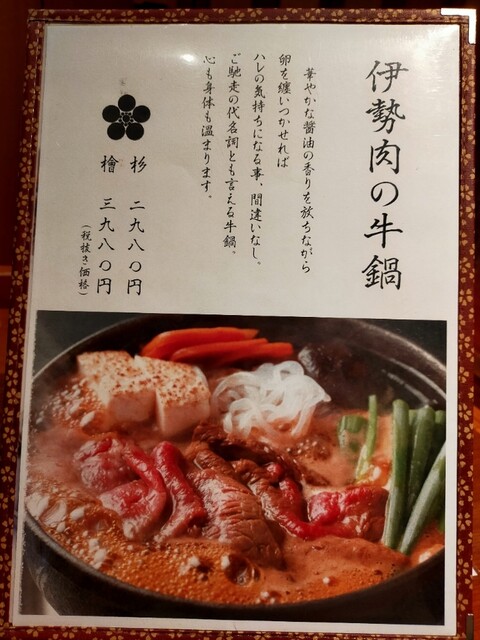 伊勢肉の牛鍋
華やかな醤油の香りを放ちながら
卵を纏いつかせれば
ハレの気持ちになる事、間違いなし。
ご馳走の代名詞とも言える牛鍋。
心も身体も温まります。
杉 二九八〇円
檜 三九八〇円
(税抜き価格)